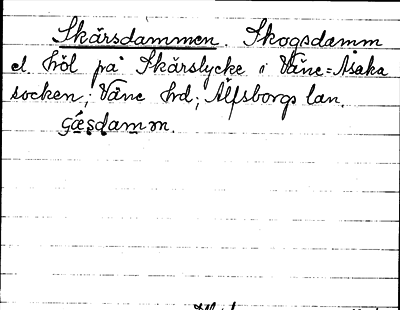 Skärsdammen. Skogsdamm
el. höl på Skärslycke i Väne-Åsaka
socken; Väne hrd; Älfsborgs lan.